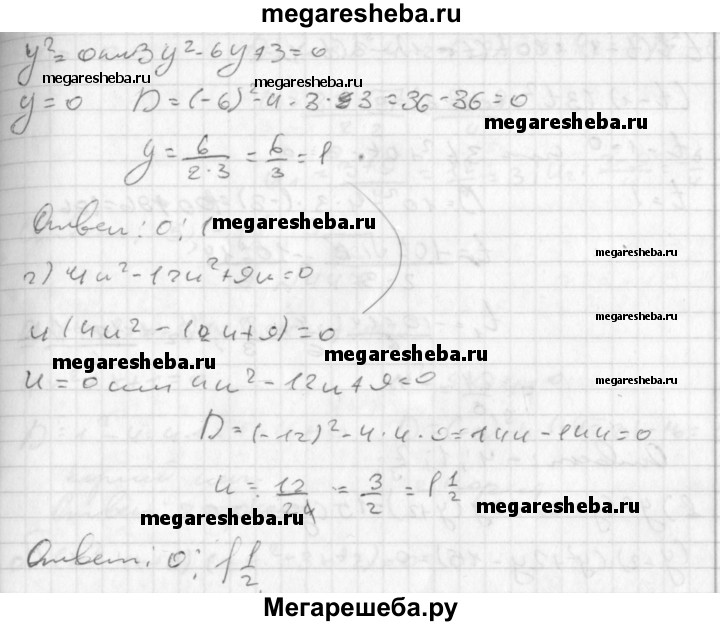 megaresheba.ru
y² = 0 или 3y² - 6y + 3 = 0
megaresheba.ru megaresheba.ru
y = 0 D = (-6)² - 4 · 3 · 3 = 36 - 36 = 0
megaresheba.ru
y = 6/(2·3) = 6/3 = 1.
Ответ: 0; 1
megaresheba.ru
megaresheba.ru
г) 4u² - 12u² + 9u = 0
u(4u² - 12u + 9) = 0
megaresheba.ru megaresheba.ru
u = 0 или 4u² - 12u + 9 = 0
megaresheba.ru
D = (-12)² - 4 · 4 · 9 = 144 - 144 = 0
u = 12/24 = 3/2 = 1 1/2
megaresheba.ru megaresheba.ru megaresheba.ru
Ответ: 0; 1 1/2.
Мегарешеба.ру